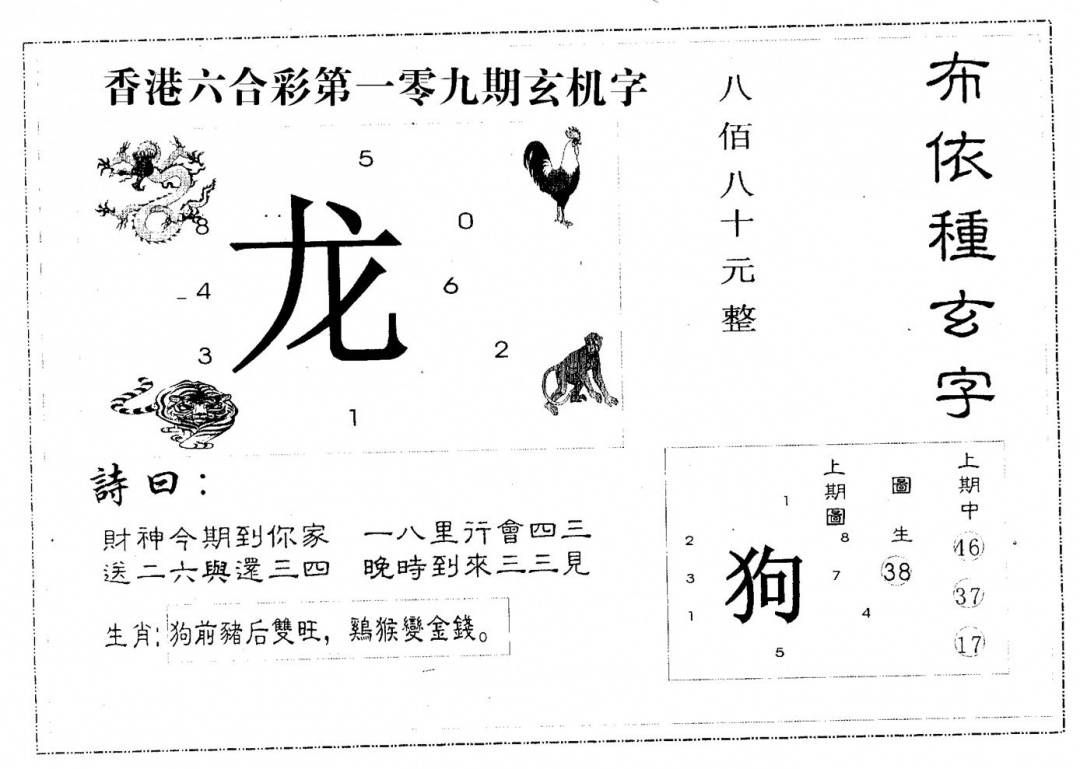 香港六合彩第一零九期玄机字
布依種玄字
八佰八十元整
5
0
8
龙
4
6
3
2
1
詩曰：
財神今期到你家 一八里行會四三
送二六與還三四 晚時到來三三見
生肖:狗前豬后雙旺，鷄猴變金錢。
上期中
46
37
17
圖生
38
上期圖
1
2
8
狗
3
7
1
4
5